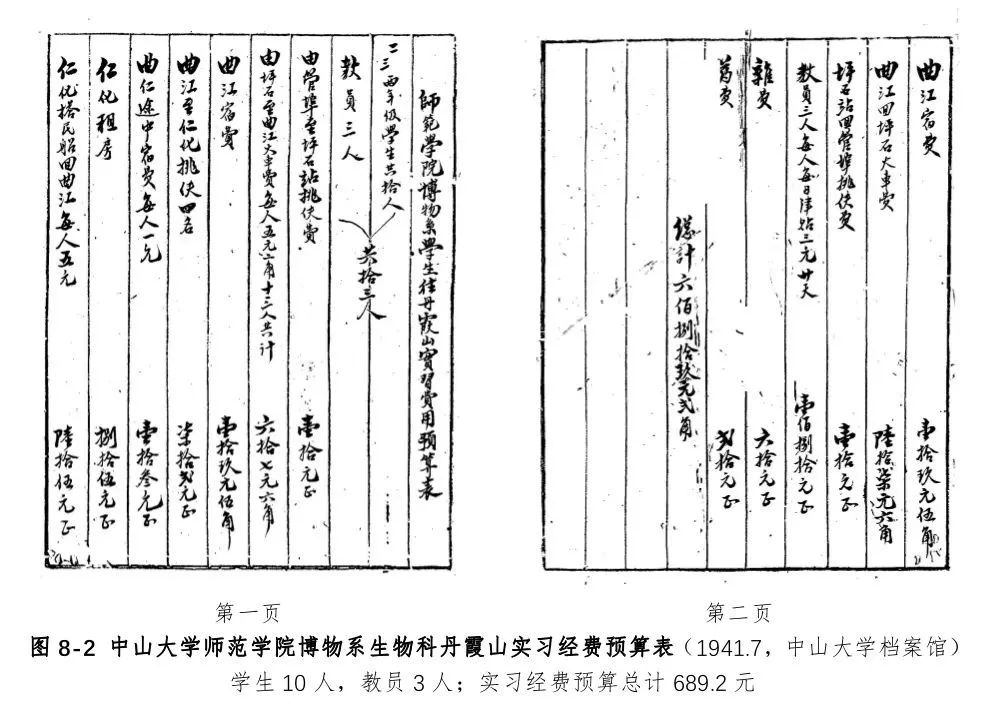 師範學院博物系學生往丹霞山實習費用預算表
二三四年级學生共拾人
教員三人
共拾三人
由管埠至坪石站挑伕費 壹拾元正
由坪石至曲江火車費每人五元二角十三人共计 六拾七元六角
曲江宿費 壹拾玖元伍角
曲江至仁化挑伕四名 柒拾弍元正
曲仁途中宿費每人一元 壹拾叁元正
仁化租房 捌拾伍元正
仁化搭民船回曲江每人五元 陸拾伍元正
曲江宿費 壹拾玖元伍角
曲江回坪石火車費 陸拾柒元六角
坪石站回管埠挑伕費 壹拾元正
教員三人每人每日津貼三元廿天 壹佰捌拾元正
雜費 六拾元正
葯費 弍拾元正
總計六佰捌拾玖元弍角
第一页
第二页
图 8-2 中山大学师范学院博物系生物科丹霞山实习经费预算表（1941.7，中山大学档案馆）
学生 10 人，教员 3 人；实习经费预算总计 689.2 元